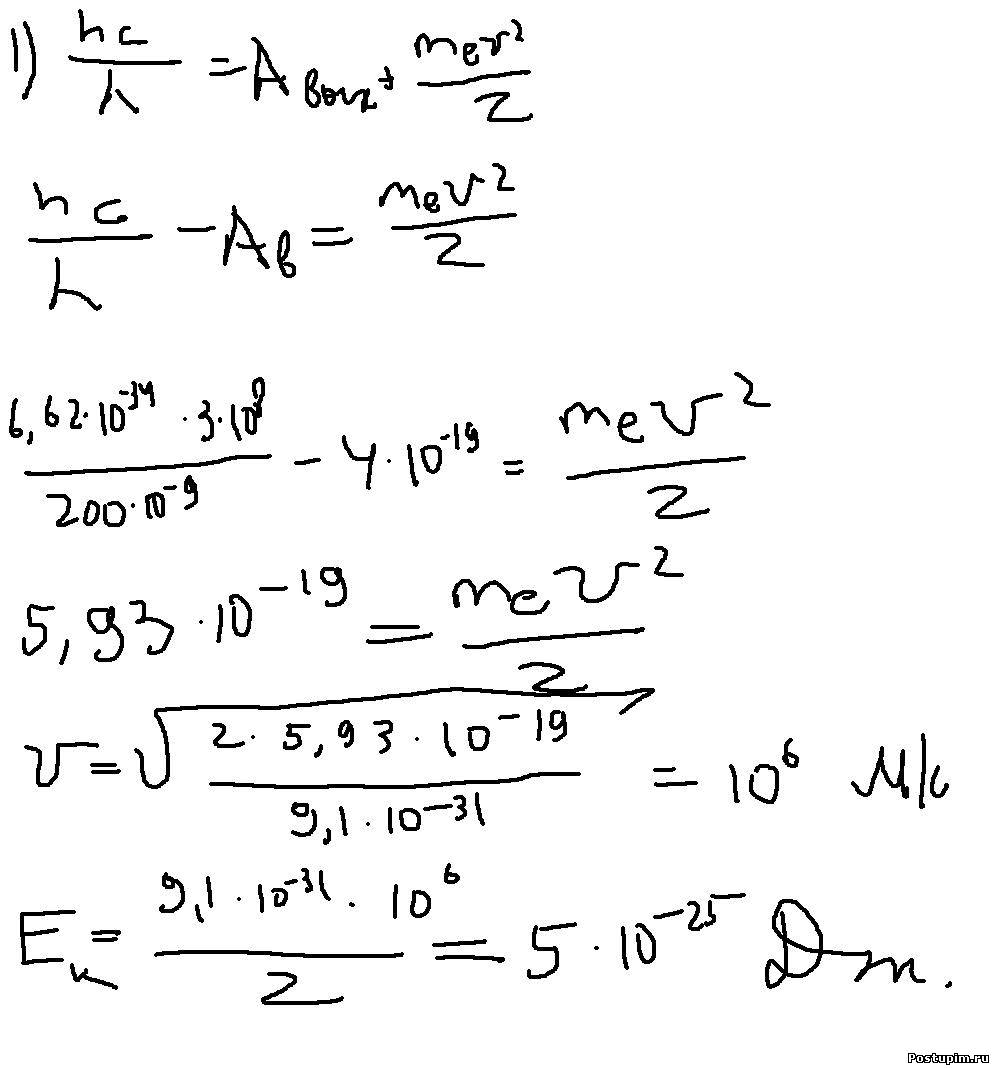 1) hc/λ = Aвых + mev²/2
hc/λ - Aв = mev²/2
6,62·10⁻³⁴ · 3·10⁸ / 200·10⁻⁹ - 4·10⁻¹⁹ = mev²/2
5,93·10⁻¹⁹ = mev²/2
v = √(2·5,93·10⁻¹⁹ / 9,1·10⁻³¹) = 10⁶ м/с
Eк = 9,1·10⁻³¹·10⁶ / 2 = 5·10⁻²⁵ Дж.
Postupim.ru